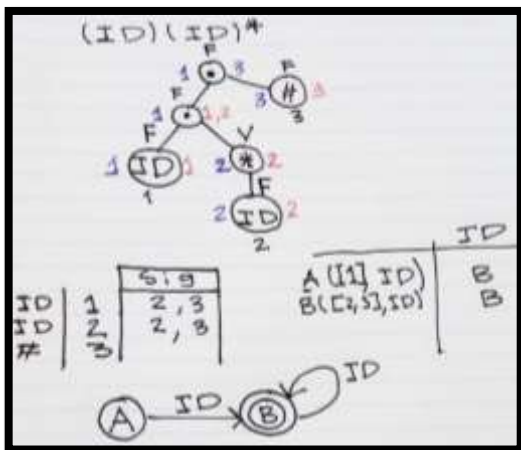 (ID)(ID)*
F
1 • 3 F
F 3 # 3
1 • 1,2 3
F V
1 ID 1 2 * 2
1 F
2 ID 2
2
Sig
ID 1 2,3
ID 2 2,3
# 3
ID
A ([1], ID) B
B([2,3],ID) B
A ID B ID